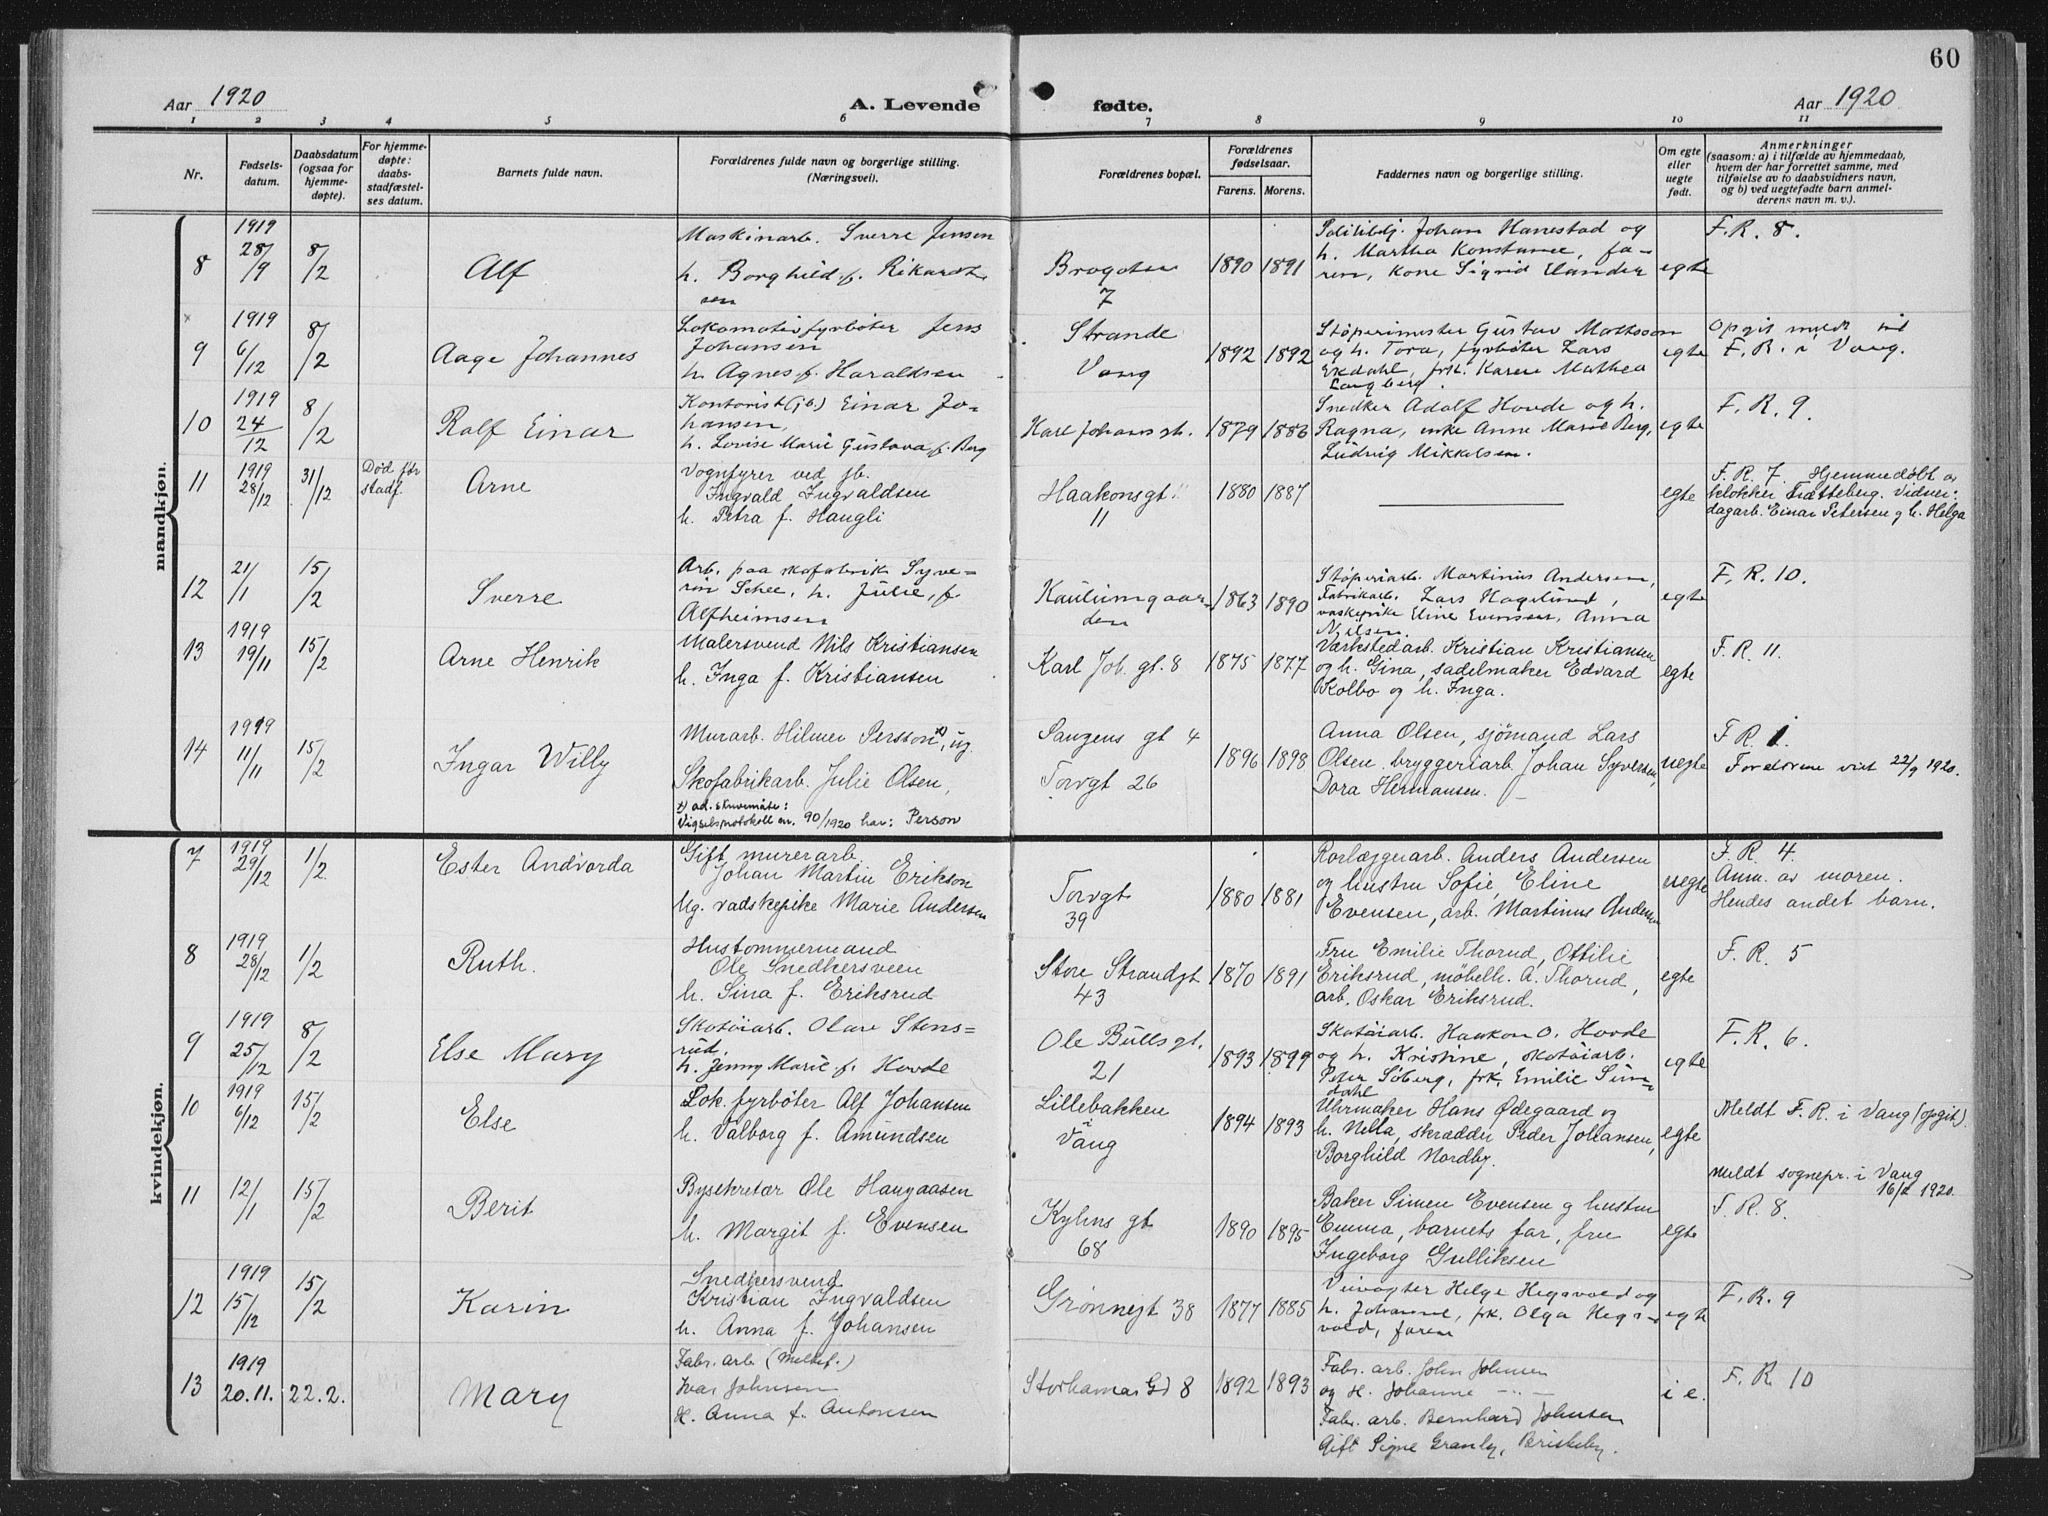 60
Aar 1920
A. Levende fødte.
Aar 1920
1 2 3 4 5 6 7 8 9 10 11
Nr.
Fødsels-
datum.
Daabsdatum
(ogsaa for
hjemme-
døpte).
For hjemme-
døpte:
daabs-
stadfæstel-
ses datum.
Barnets fulde navn.
Forældrenes fulde navn og borgerlige stilling.
(Næringsvei).
Forældrenes bopæl.
Forældrenes
fødselsaar.
Farens. Morens.
Faddernes navn og borgerlige stilling.
Om egte
eller
uegte
født.
Anmerkninger
(saasom: a) i tilfælde av hjemmedaab,
hvem der har forrettet samme, med
tilføielse av to daabsvidners navn,
og b) ved uegtefødte barn anmel-
derens navn m. v.).
mandkjøn.
8
1919
28/9
8/2
Alf
Maskinarb. Sverre Jensen
h. Borghild f. Rikardt
sen
Brogaten
7
1890 1891
Johan Hanestad og
h. Martha Konstanse, fa-
ren, kone Sigrid Elander
egte
F. R. 8.
9
1919
6/12
8/2
Aage Johannes
Lokomotivfyrbøter Jens
Johansen
h. Agnes f. Haraldsen
Strande
Vang
1892 1892
Støperimester Gustav Mattsson
og h. Tora, fyrbøter Lars
Ekdahl, frk. Karen Mathea
Langberg.
egte
Opgit meldt til
F. R. i Vang.
10
1919
24/12
8/2
Ralf Einar
Kontorist (jb.) Einar Jo-
hansen,
h. Lovise Marie Gustava f. Berg
Karl Johans gt.
1879 1886
Snedker Adolf Hovde og h.
Ragna, enke Anne Marie Berg,
Ludvig Mikkelsen.
egte
F. R. 9.
11
1919
28/12
31/12
Død før
stadf.
Arne
Vognfyrer ved jb.
Ingvald Ingvaldsen
h. Petra f. Haugli
Haakonsgt
11
1880 1887
egte
F. R. 7. Hjemmedøbt av
klokker Frætteberg. Vidner:
dagarb. Einar Petersen og h. Helga
12
21/1
15/2
Sverre
Arb. paa skofabrik Syve-
rin Schee, h. Julie, f.
Alfheimsen
Kaulumgaar-
den
1863 1890
Støperiarb. Martinus Andersen,
Fabrikarb. Lars Hagelund,
vaskepike Eline Evensen, Anna
Nielsen.
egte
F. R. 10.
13
1919
19/11
15/2
Arne Henrik
Malersvend Nils Kristiansen
h. Inga f. Kristiansen
Karl Joh. gt. 8
1875 1877
Værkstedarb. Kristian Kristiansen
og h. Gina, sadelmaker Edvard
Kolbo og h. Inga.
egte
F. R. 11.
14
1919
11/11
15/2
Ingar Willy
Murarb. Hilmer Persson x), ug.
Skofabrikarb. Julie Olsen,
x) ad. skrivemåte:
Vigselsprotokoll nr. 90/1920 har: Person
Pangens gt 4
Torvgt 26
1896 1898
Anna Olsen, sjømand Lars
Olsen, bryggeriarb. Johan Syversen,
Dora Hermansen.
uegte
F. R. 1.
Forældrene viet 22/9 1920.
kvindekjøn.
7
1919
29/12
1/2
Ester Andvorda
Gift murerarb.
Johan Martin Erikson
Ug. vadskepike Marie Andersen
Torvgt
39
1880 1881
Rørlæggerarb. Anders Andersen
og hustru Sofie, Eline
Evensen, arb. Martinus Andersen
uegte
F. R. 4.
Anm. av moren.
Hendes andet barn.
8
1919
28/12
1/2
Ruth.
Hustømmermand
Ole Snedkersveen
h. Sina f. Eriksrud
Store Strandgt
43
1870 1891
Fru Emilie Thorud, Ottilie
Eriksrud, møbelh. A. Thorud,
arb. Oskar Eriksrud.
egte
F. R. 5
9
1919
25/12
8/2
Else Mary
Skotøiarb. Olav Stens-
rud,
h. Jenny Marie f. Hovde
Ole Bullsgt.
21
1893 1899
Skotøiarb. Haakon O. Hovde
og h. Kristine, skotøiarb.
Peter Søberg, frk. Emilie Sun-
dahl
egte
F. R. 6.
10
1919
6/12
15/2
Else
Lok. fyrbøter Alf Johansen
h. Valborg f. Amundsen
Lillebakken
i
Vang
1894 1893
Uhrmaker Hans Ødegaard og
h. Nilla, skrædder Peder Johansen,
Borghild Nordby.
egte
Meldt F. R. i Vang (opgit).
meldt sognepr. i Vang
16/2 1920.
11
12/1
15/2
Berit
Bysekretær Ole Haugaasen
h. Margit f. Evensen
Kyhns gt
68
1890 1895
Baker Simen Evensen og hustru
Emma, barnets far, fru
Ingeborg Gulliksen
egte
F. R. 8.
12
1919
15/12
15/2
Karin
Snedkersvend
Kristian Ingvaldsen
h. Anna f. Johansen
Grønnegt 38
1877 1885
Veivogter Helge Hegsvold og
h. Johanne, frk. Olga Hegs-
vold, faren
egte
F. R. 9
13
1919
20.11.
22.2.
Mary
Fabr. arb. (Meltef.)
Ivar Johnsen
H. Anna f. Antonsen
Storhamar Gd 8
1892 1893
Fabr. arb. John Johnsen
og H. Johanne —"—
Fabr. arb. Bernhard Johnsen
Gift Signe Granly, Briskeby.
i e.
F. R. 10